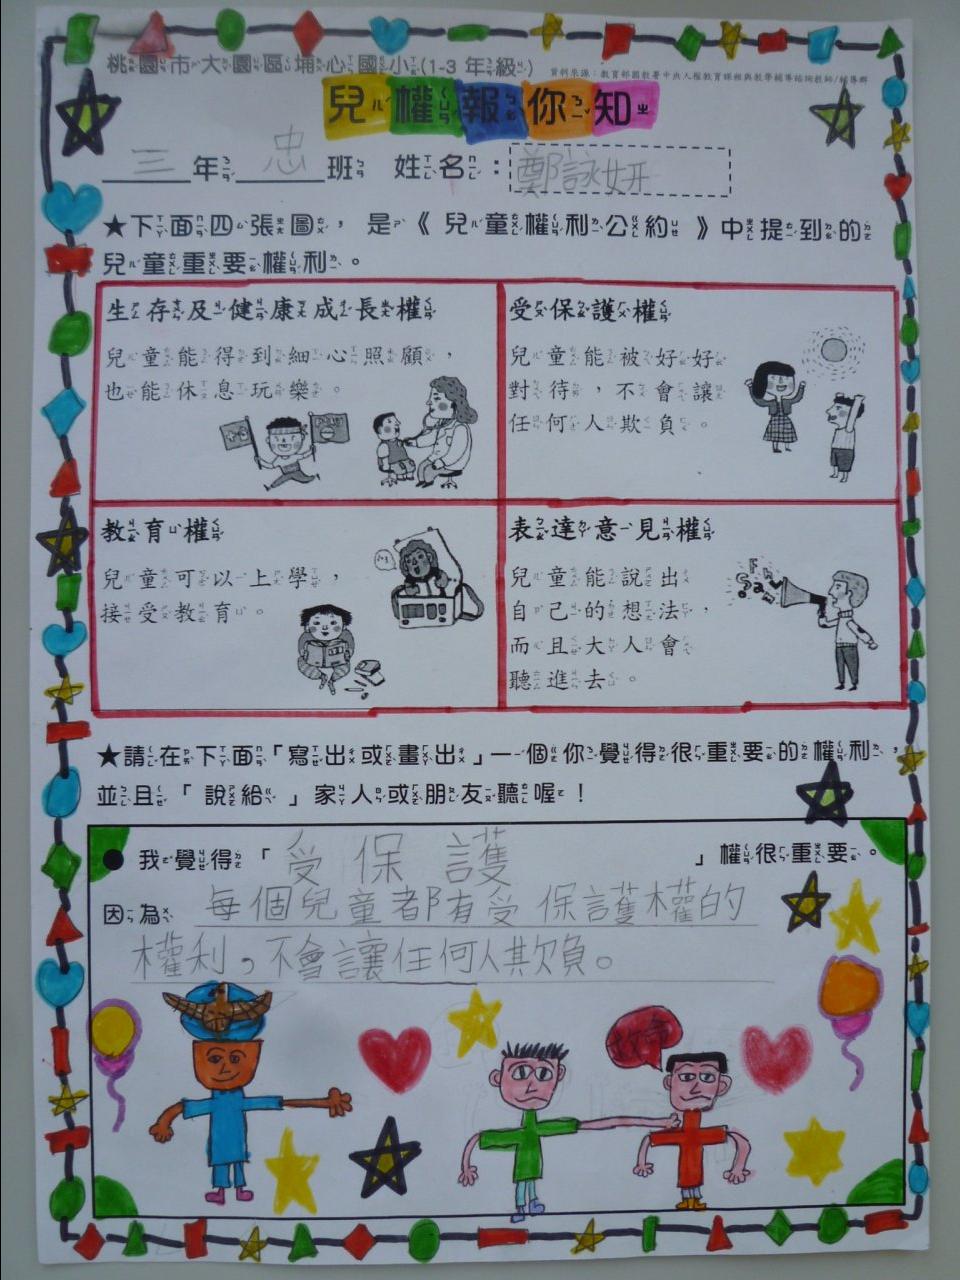 桃園市大園區埔心國小(1-3 年級)
資料來源：教育部國教署中央人權教育課程與教學輔導諮詢教師/輔導群
兒權報你知
三年忠班 姓名：鄭詠妍
★下面四張圖，是《兒童權利公約》中提到的
兒童重要權利。
生存及健康成長權
兒童能得到細心照顧，
也能休息玩樂。
受保護權
兒童能被好好
對待，不會讓
任何人欺負。
教育權
兒童可以上學，
接受教育。
表達意見權
兒童能說出
自己的想法，
而且大人會
聽進去。
★請在下面「寫出或畫出」一個你覺得很重要的權利，
並且「說給」家人或朋友聽喔！
●我覺得「受保護」權很重要。
因為每個兒童都有受保護權的
權利，不會讓任何人欺負。
救命